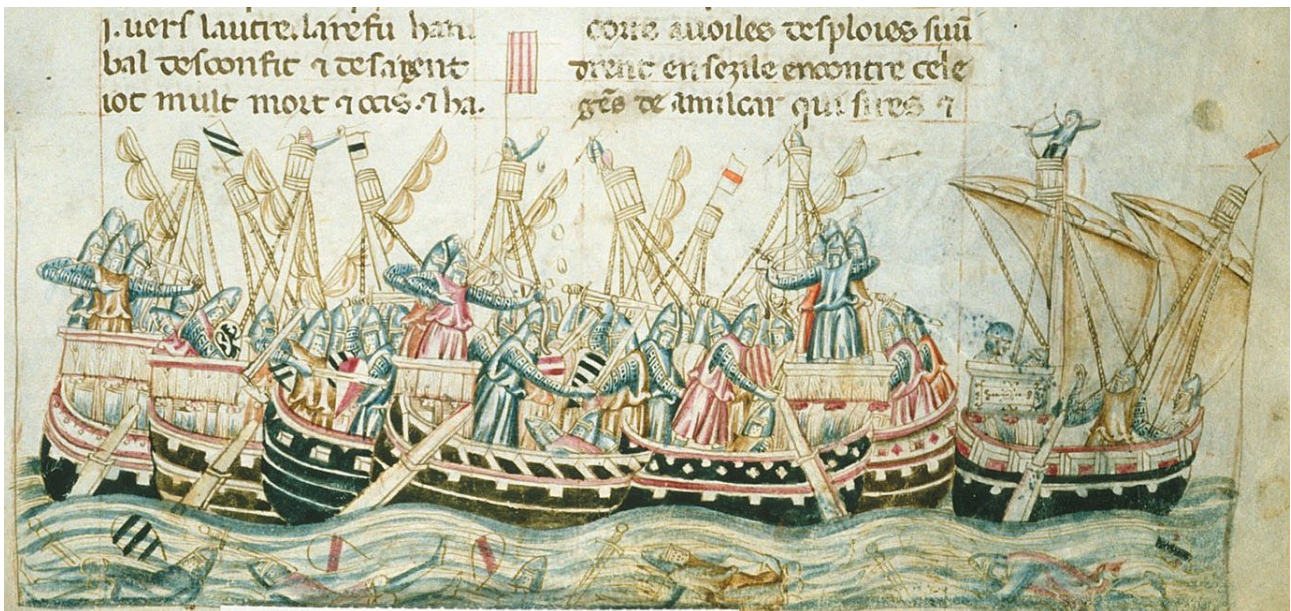 j. uers lautre. la refu hani
bal desconfit ⁊ desa gent
iot mult mort ⁊ ocis. ⁊ ha.
auoiles desploies
drent en sezile encontre cele
gẽs de amilcar qui sires ⁊